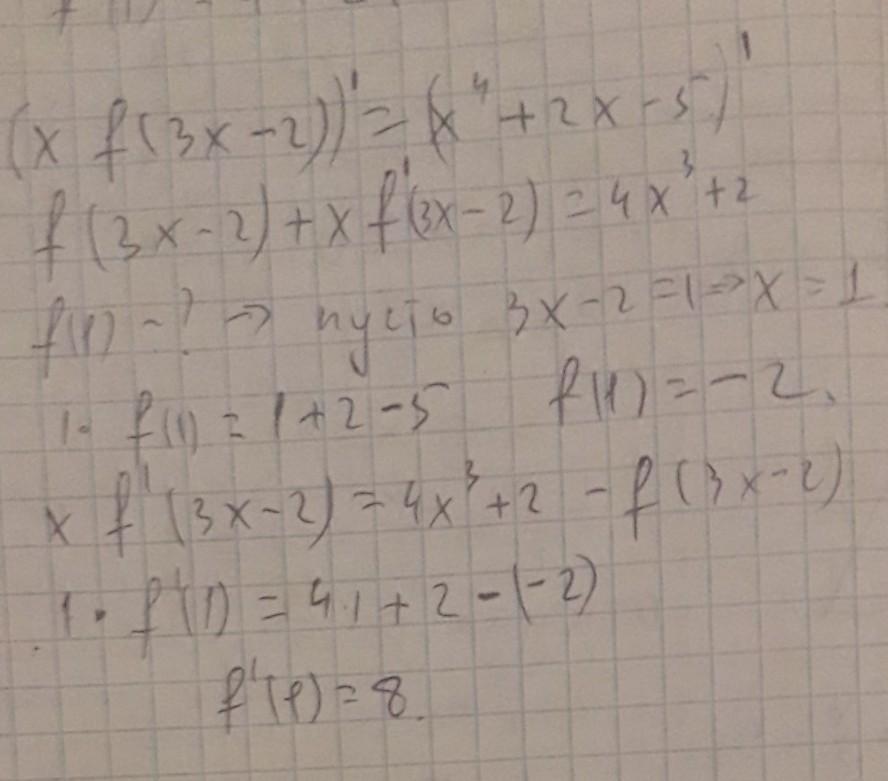 (x f(3x-2))' = (x⁴+2x-5)'
f(3x-2)+x f'(3x-2) = 4x³+2
f(1) - ? → пусть 3x-2=1 ⇒ x = 1
1· f(1) = 1+2-5 f(1) = -2.
x f'(3x-2) = 4x³+2 - f(3x-2)
1· f'(1) = 4·1 + 2 - (-2)
f'(1) = 8.